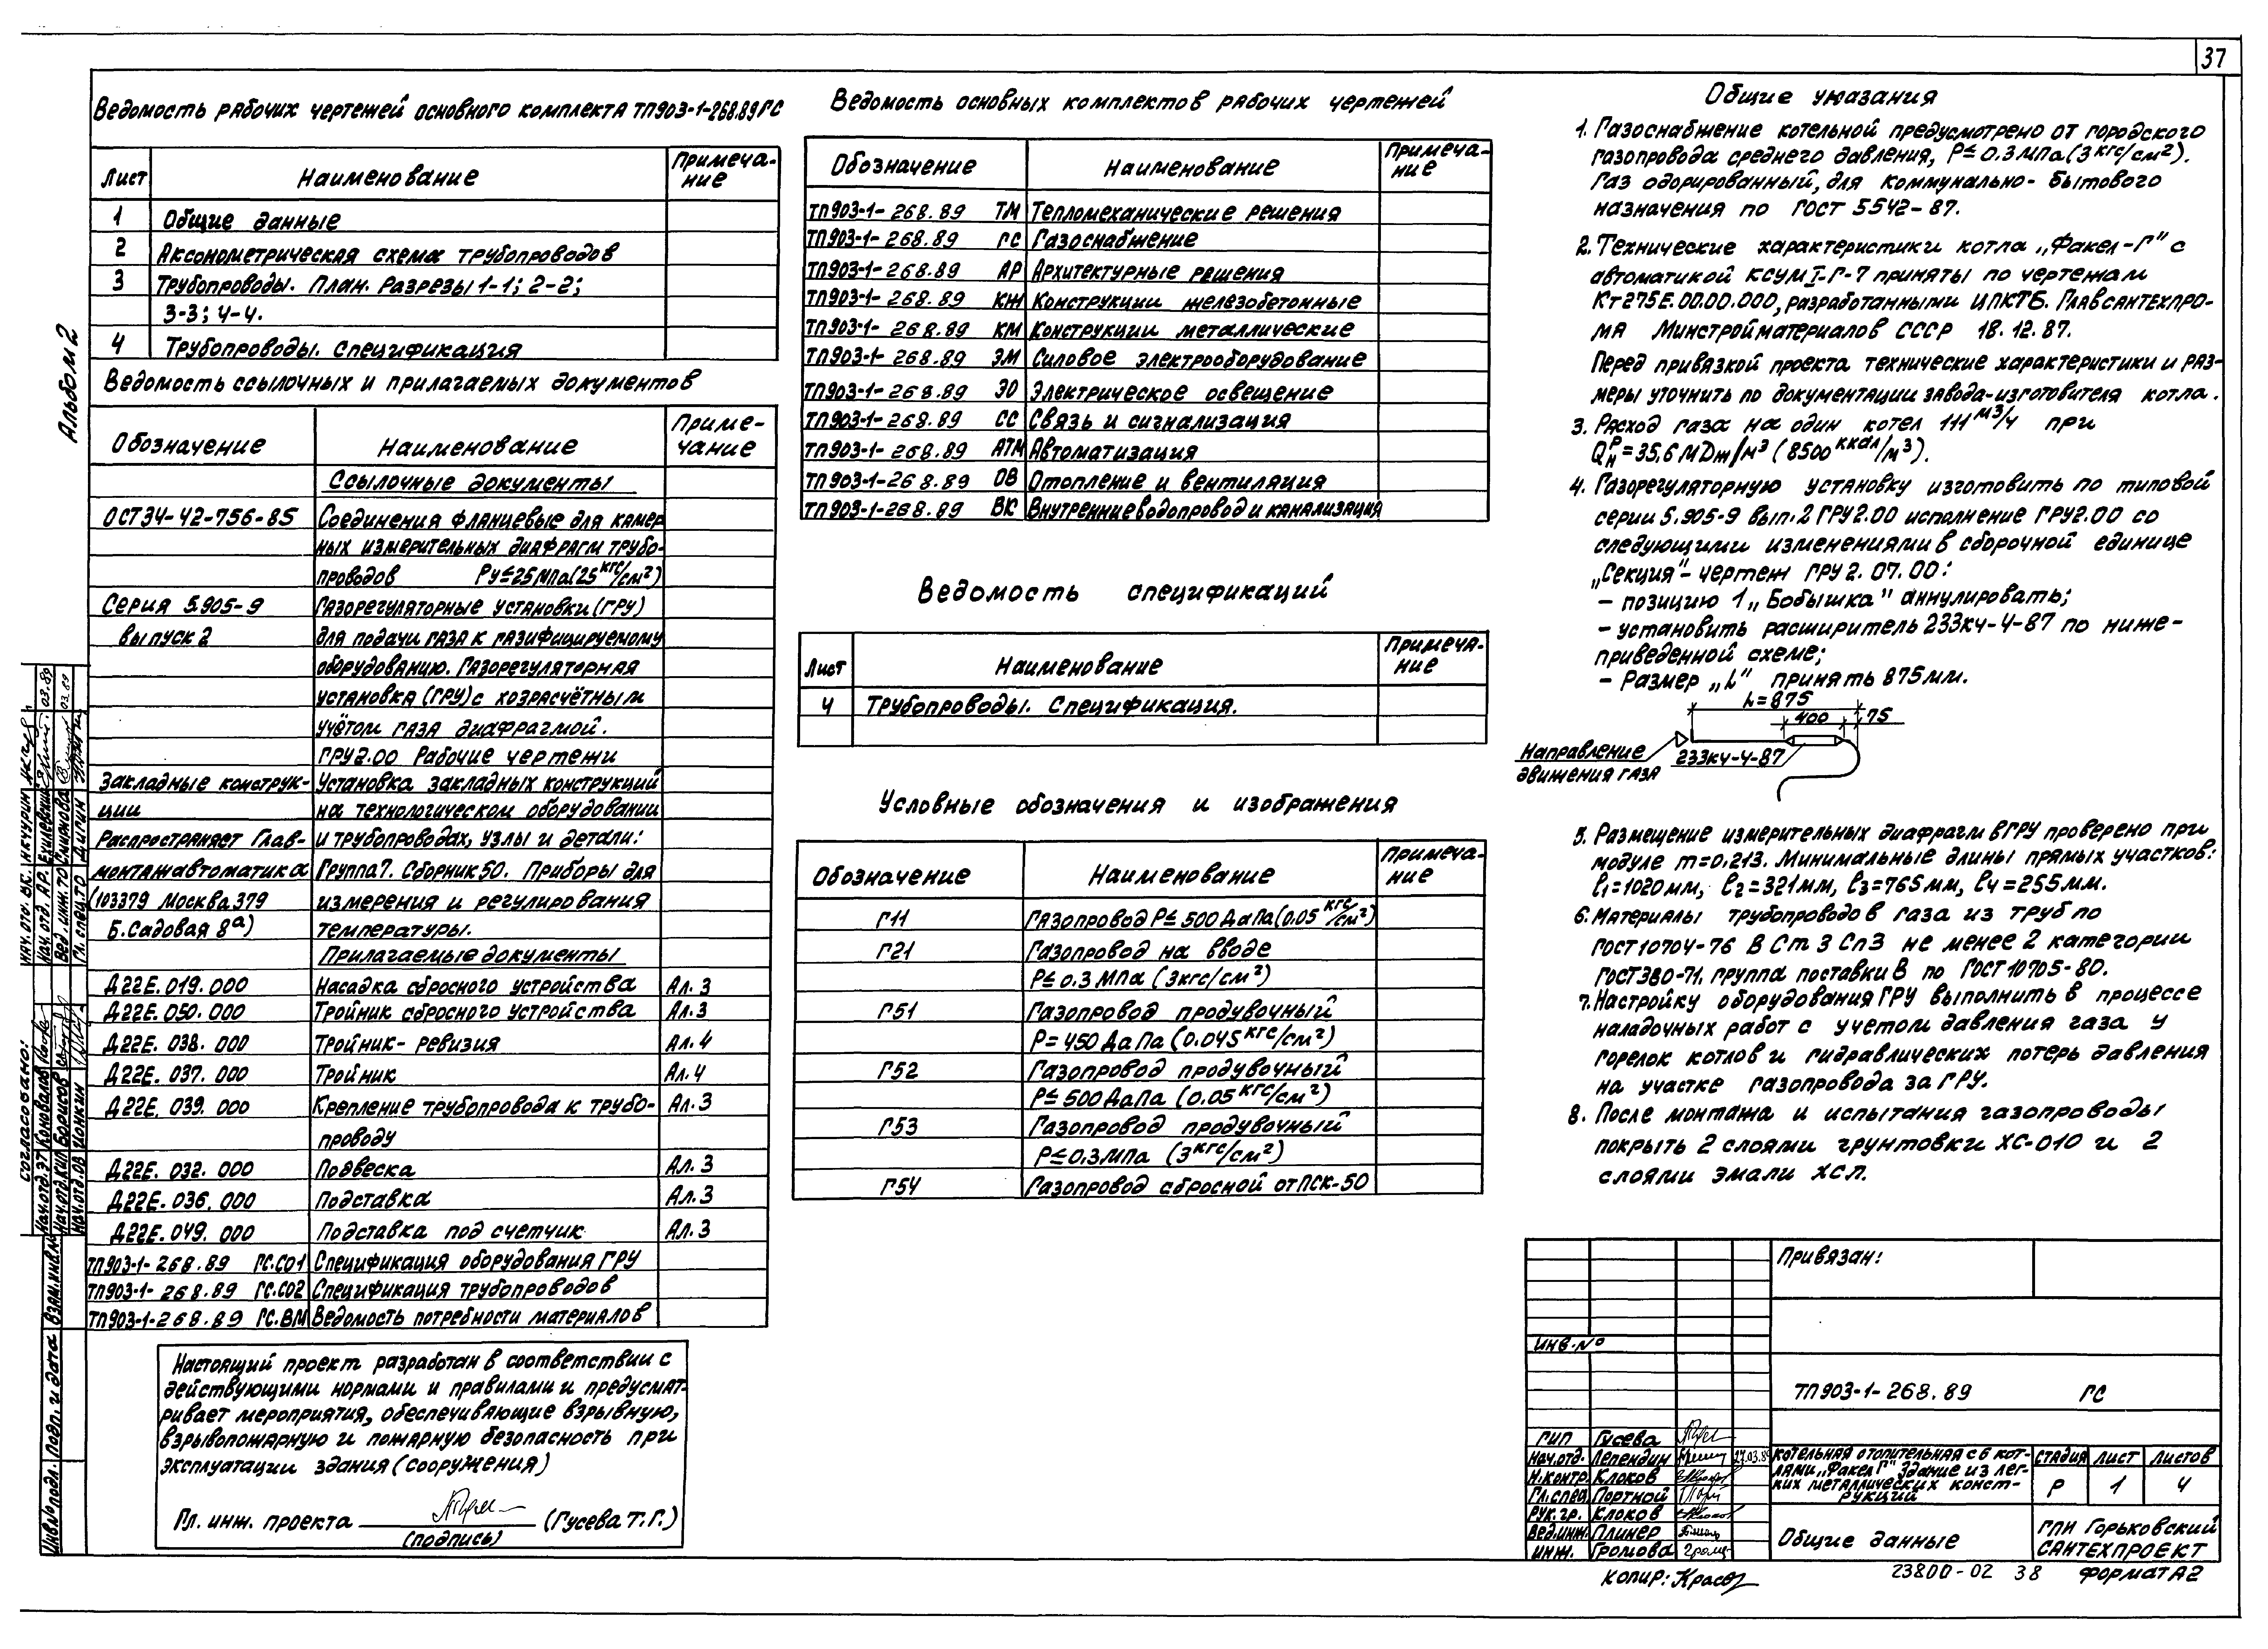 37
Альбом 2
Ведомость рабочих чертежей основного комплекта ТП903-1-268.89 ГС
Лист Наименование Примеча-
ние
1 Общие данные
2 Аксонометрическая схема трубопроводов
3 Трубопроводы. План. Разрезы 1-1; 2-2;
3-3; 4-4.
4 Трубопроводы. Спецификация
Ведомость ссылочных и прилагаемых документов
Обозначение Наименование Приме-
чание
Ссылочные документы
ОСТ34-42-756-85 Соединения фланцевые для камер
ных измерительных диафрагм трубо-
проводов Ру≤25МПа(25кгс/см²)
Серия 5.905-9 Газорегуляторные установки (ГРУ)
выпуск 2 для подачи газа к газифицируемому
оборудованию. Газорегуляторная
установка (ГРУ) с хозрасчётным
учётом газа диафрагмой.
ГРУ2.00 Рабочие чертежи
Закладные конструк- Установка закладных конструкций
ции на технологическом оборудовании
Распространяет Глав- и трубопроводах, узлы и детали:
монтажавтоматика Группа 7. Сборник 50. Приборы для
(103379 Москва 379 измерения и регулирования
Б.Садовая 8а) температуры.
Прилагаемые документы
Д22Е.019.000 Насадка сбросного устройства Ал.3
Д22Е.050.000 Тройник сбросного устройства Ал.3
Д22Е.038.000 Тройник-ревизия Ал.4
Д22Е.037.000 Тройник Ал.4
Д22Е.039.000 Крепление трубопровода к трубо- Ал.3
проводу
Д22Е.032.000 Подвеска Ал.3
Д22Е.036.000 Подставка Ал.3
Д22Е.049.000 Подставка под счетчик Ал.3
ТП903-1-268.89 ГС.СО1 Спецификация оборудования ГРУ
ТП903-1-268.89 ГС.СО2 Спецификация трубопроводов
ТП903-1-268.89 ГС.ВМ Ведомость потребности материалов
Настоящий проект разработан в соответствии с
действующими нормами и правилами и предусмат-
ривает мероприятия, обеспечивающие взрывную,
взрывопожарную и пожарную безопасность при
эксплуатации здания (сооружения)
Гл. инж. проекта (Гусева Т.Г.)
(подпись)
Ведомость основных комплектов рабочих чертежей
Обозначение Наименование Примеча-
ние
ТП903-1-268.89 ТМ Тепломеханические решения
ТП903-1-268.89 ГС Газоснабжение
ТП903-1-268.89 АР Архитектурные решения
ТП903-1-268.89 КЖ Конструкции железобетонные
ТП903-1-268.89 КМ Конструкции металлические
ТП903-1-268.89 ЭМ Силовое электрооборудование
ТП903-1-268.89 ЭО Электрическое освещение
ТП903-1-268.89 СС Связь и сигнализация
ТП903-1-268.89 АТМ Автоматизация
ТП903-1-268.89 ОВ Отопление и вентиляция
ТП903-1-268.89 ВК Внутренние водопровод и канализация
Ведомость спецификаций
Лист Наименование Примеча-
ние
4 Трубопроводы. Спецификация.
Условные обозначения и изображения
Обозначение Наименование Примеча-
ние
Г11 Газопровод Р≤500 ДаПа(0.05 кгс/см²)
Г21 Газопровод на вводе
Р≤0.3 МПа (3кгс/см²)
Г51 Газопровод продувочный
Р=450 ДаПа (0.045 кгс/см²)
Г52 Газопровод продувочный
Р≤500 ДаПа (0.05 кгс/см²)
Г53 Газопровод продувочный
Р≤0.3МПа (3кгс/см²)
Г54 Газопровод сбросной от ПСК-50
Общие указания
1. Газоснабжение котельной предусмотрено от городского
газопровода среднего давления, Р≤0.3МПа(3кгс/см²).
Газ одорированный, для коммунально-бытового
назначения по ГОСТ 5542-87.
2. Технические характеристики котла „Факел-Г" с
автоматикой КСУМI-Г-7 приняты по чертежам
Кт275Е.00.00.000, разработанными ЦПКТБ. Главсантехпро-
ма Минстройматериалов СССР 18.12.87.
Перед привязкой проекта технические характеристики и раз-
меры уточнить по документации завода-изготовителя котла.
3. Расход газа на один котел 111 м³/ч при
Qнр=35,6МДж/м³ (8500 ккал/м³).
4. Газорегуляторную установку изготовить по типовой
серии 5.905-9 вып.2 ГРУ2.00 исполнение ГРУ2.00 со
следующими изменениями в сборочной единице
„Секция"-чертеж ГРУ2.07.00:
- позицию 1 „Бобышка" аннулировать;
- установить расширитель 233кч-4-87 по ниже-
приведенной схеме;
- Размер „L" принять 875мм.
L=875
400 75
Направление
движения газа
233кч-4-87
5. Размещение измерительных диафрагм в ГРУ проверено при
модуле m=0,213. Минимальные длины прямых участков:
ℓ1=1020мм, ℓ2=321мм, ℓ3=765мм, ℓ4=255мм.
6. Материалы трубопроводов газа из труб по
ГОСТ10704-76 В Ст 3 Сп3 не менее 2 категории
ГОСТ380-71. группа поставки В по ГОСТ10705-80.
7. Настройку оборудования ГРУ выполнить в процессе
наладочных работ с учетом давления газа у
горелок котлов и гидравлических потерь давления
на участке газопровода за ГРУ.
8. После монтажа и испытания газопроводы
покрыть 2 слоями грунтовки ХС-010 и 2
слоями эмали ХСЛ.
Привязан:
Инв.№
ТП903-1-268.89 ГС
ГИП Гусева
Нач.отд. Лепендин 27.03.89
Н.контр. Клоков
Гл.спец. Портной
Рук.гр. Клоков
Вед.инж. Плинер
Инж. Громова
Котельная отопительная с 6 кот-
лами „Факел Г" Здание из лег-
ких металлических конст-
рукций
Стадия Лист Листов
Р 1 4
Общие данные
ГПИ Горьковский
САНТЕХПРОЕКТ
Копир:
23800-02 38 Формат А2
Согласовано:
Нач.отд.ЭТ Коновалов
Нач.отд.КИП Борисов
Нач.отд.ОВ Ионкин
Нач.отд.ВК. Аккурин
Нач.отд. АР.
Вед.инж.ТО Смирнова 03.89
Гл.спец.ТО Дитин
Взам.инв.№
Подп. и дата
Инв.№подл.